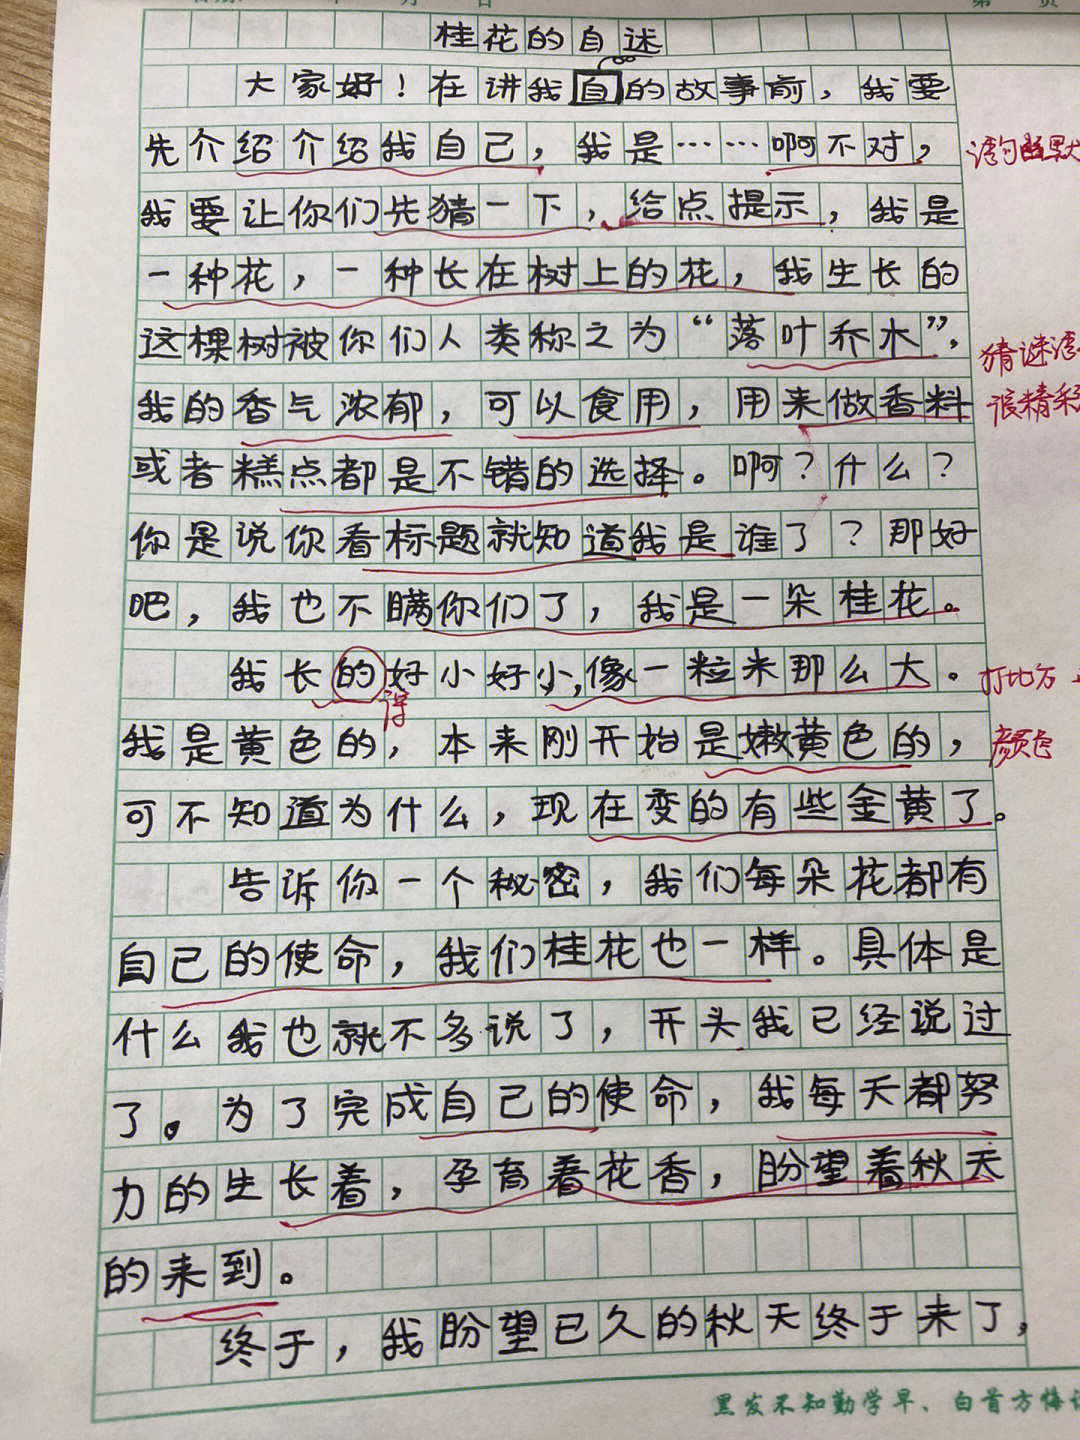 桂花的自述
大家好！在讲我自的故事前，我要
先介绍介绍我自己，我是……啊不对，
语句幽默
我要让你们先猜一下，给点提示，我是
一种花，一种长在树上的花，我生长的
这棵树被你们人类称之为“落叶乔木”，
猜谜语
我的香气浓郁，可以食用，用来做香料
很精彩
或者糕点都是不错的选择。啊？什么？
你是说你看标题就知道我是谁了？那好
吧，我也不瞒你们了，我是一朵桂花。
我长的好小好小，像一粒米那么大。
得
打比方
我是黄色的，本来刚开始是嫩黄色的，
颜色
可不知道为什么，现在变的有些金黄了。
告诉你一个秘密，我们每朵花都有
自己的使命，我们桂花也一样。具体是
什么我也就不多说了，开头我已经说过
了。为了完成自己的使命，我每天都努
力的生长着，孕育着花香，盼望着秋天
的来到。
终于，我盼望已久的秋天终于来了，
黑发不知勤学早、白首方悔